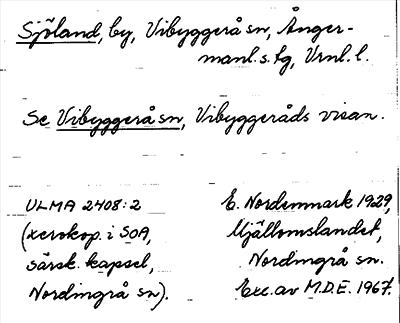 Sjöland, by, Vibyggerå sn, Ånger-
manl. s. tg, Vrnl. l.
Se Vibyggerå sn, Vibyggeråds visan.
ULMA 2408:2
(xerokop. i SOA,
särsk. kapsel,
Nordingrå sn).
E. Nordenmark 1929,
Mjällomslandet,
Nordingrå sn.
Exc. av M.D.E. 1967.